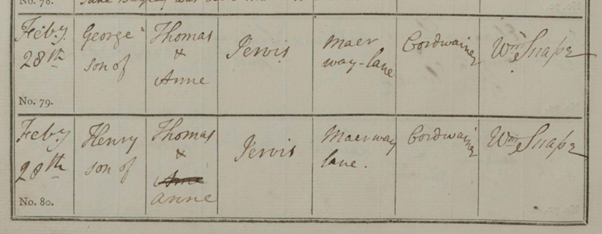 No. 78.
Feby. 28th George son of Thomas & Anne Jervis Maer way-lane Cordwainer Wm Snape
No. 79.
Feby 28th Henry son of Thomas & Anne Jervis Maerway lane. Cordwainer Wm Snape
No. 80.